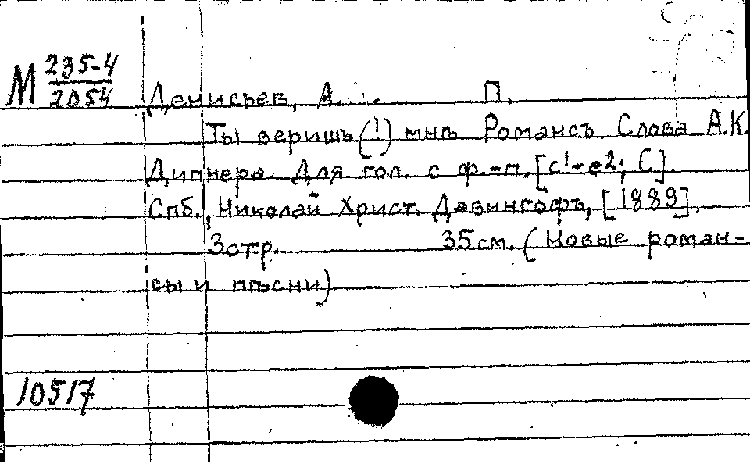 М 235-4
2054
Денисьев, А. П.
Ты веришь (!) мнѣ Романсъ Слова А.К.
Дитнера. Для гол. с ф.-п. [c¹-e2; C].
Спб., Николай Христ. Давингофъ, [1889].
3 стр. 35 см. (Новые роман-
сы и пѣсни)
10517